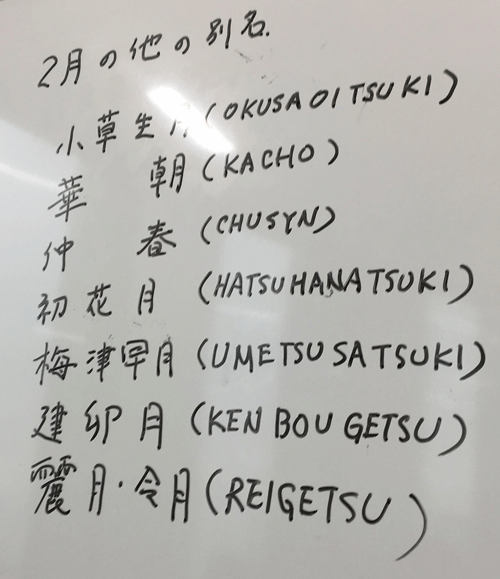 2月の他の別名.
小草生月(OKUSAOITSUKI)
華朝(KACHO)
仲春(CHUSYN)
初花月(HATSUHANATSUKI)
梅津早月(UMETSUSATSUKI)
建卯月(KENBOUGETSU)
麗月・令月(REIGETSU)